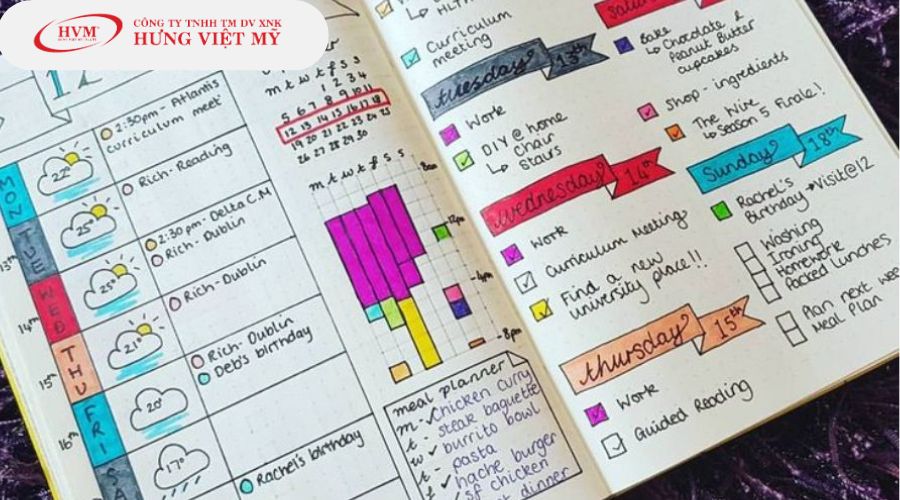 HVM
CÔNG TY TNHH TM DV XNK
HƯNG VIỆT MỸ
12
2:30pm - Atlantis
curriculum meet
MON
22°
Rich-Reading
13th
TUE
25°
2:30pm - Delta C.M
Rich-Dublin
14th
WED
25°
Rich-Dublin
15th
THU
21°
Rich-Dublin
Deb's birthday
16th
FRI
20°
SA
17°
Rachel's birthday
m t w t f s s
1 2 3 4
5 6 7 8 9 10 11
12 13 14 15 16 17 18
19 20 21 22 23 24 25
26 27 28 29 30
m t w t f s s
8am
12pm
4pm
8pm
meal planner
m - Chicken curry
t - steak baguette
w burrito bowl
t - pasta
hache burger
sf chicken
dinner
HLTA
Curriculum
meeting
Tuesday 13th
Work
DIY @ home
chair
stairs
Wednesday 14th
Work
Curriculum Meeting
Find a new
university place!!
Thursday 15th
Work
Guided Reading
Saturday
Bake
Chocolate &
Peanut Butter
cupcakes
Shop - ingredients
The Wire
Season 5 Finale!
Sunday 18th
Rachel's
Birthday → Visit @ 12
Washing
Ironing
Homework
Packed Lunches
Plan next wee
Meal Plan